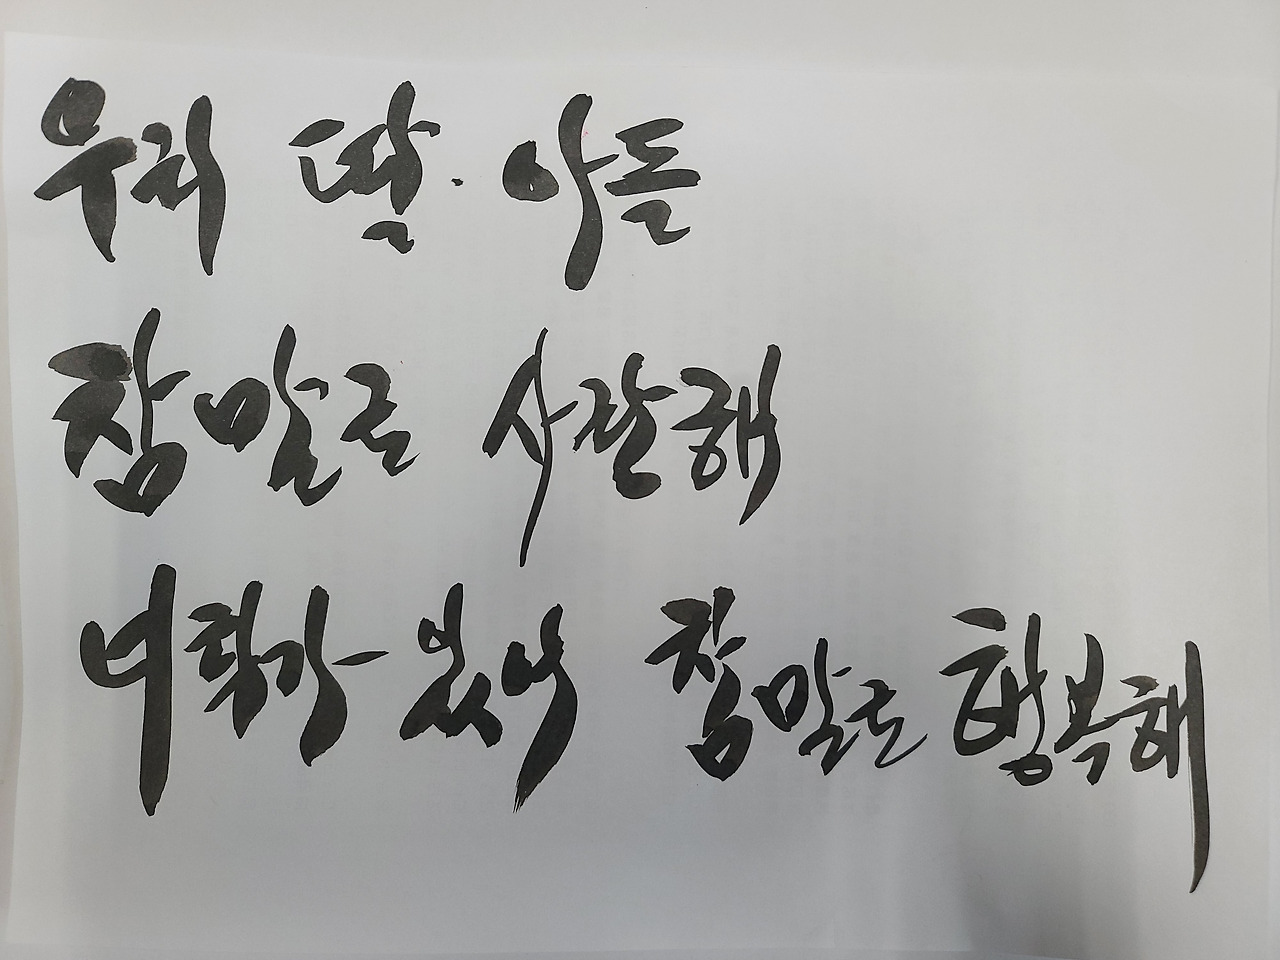 우리 딸·아들
참말로 사랑해
너희가 있어 참말로 행복해